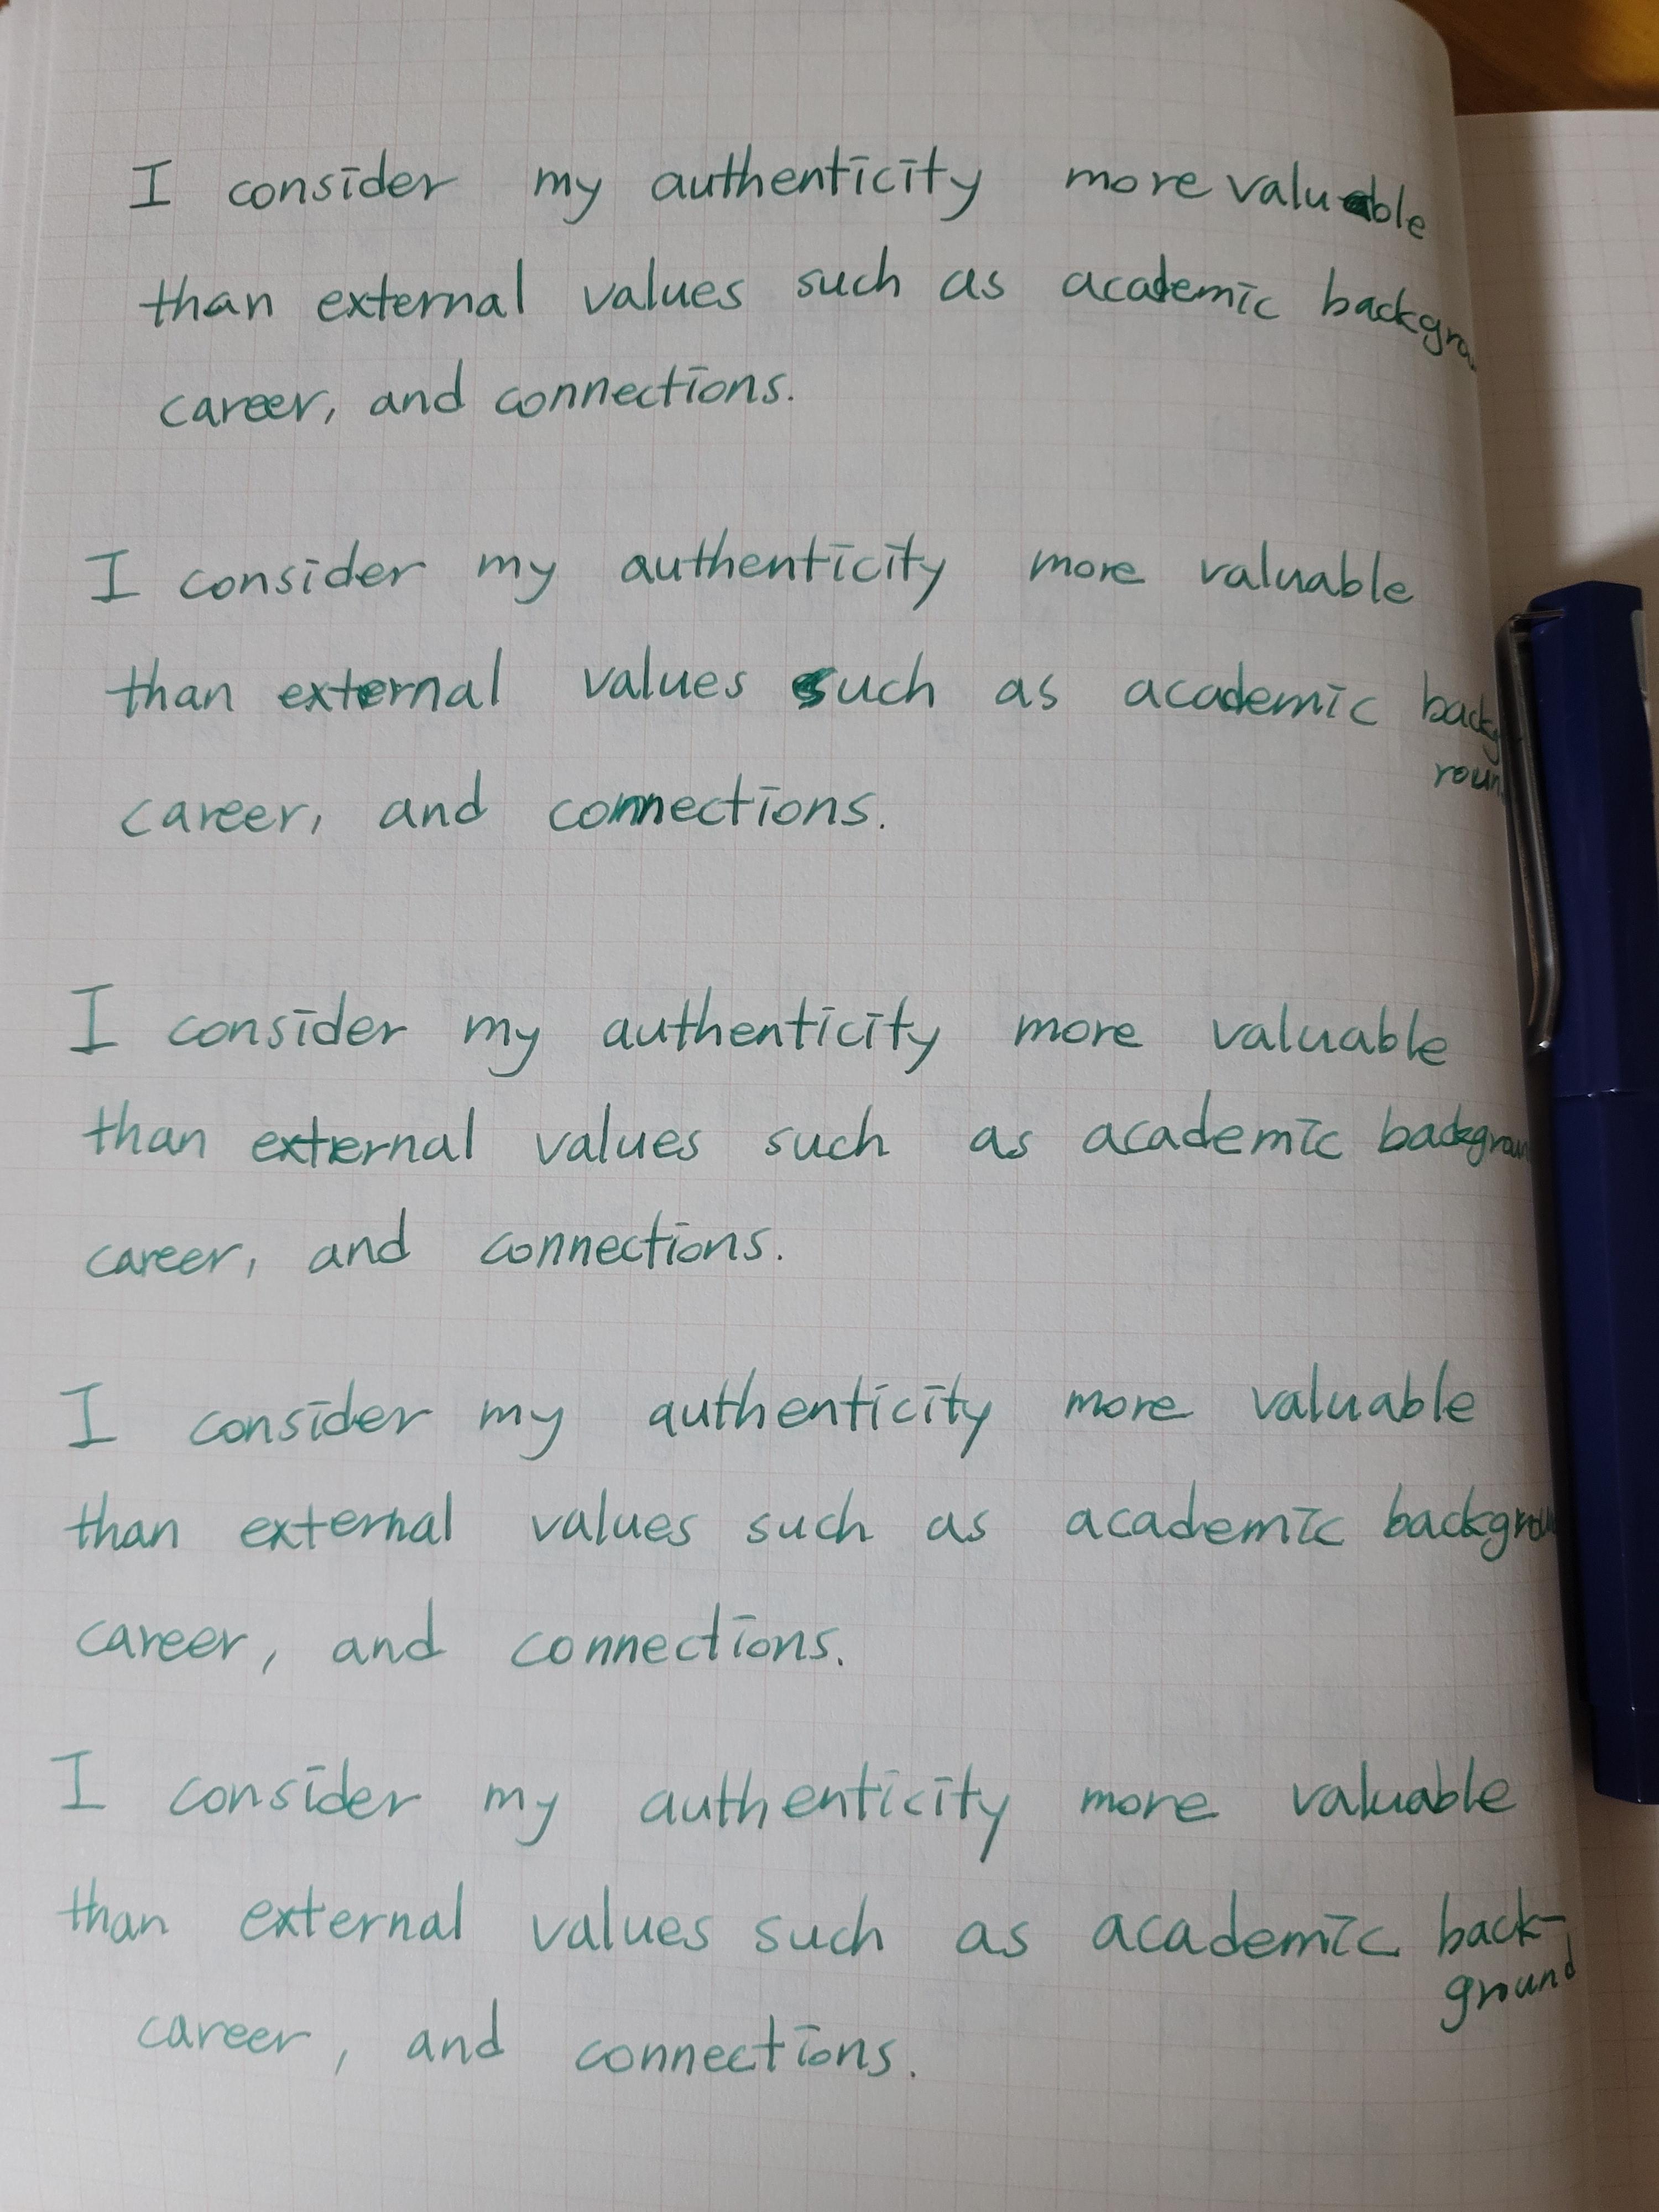 I consider my authenticity more valuable
than external values such as academic backgrou
career, and connections.
I consider my authenticity more valuable
than external values such as academic backg
roun
career, and connections.
I consider my authenticity more valuable
than external values such as academic backgroun
career, and connections.
I consider my authenticity more valuable
than external values such as academic backgrou
career, and connections.
I consider my authenticity more valuable
than external values such as academic back-
ground
career, and connections.